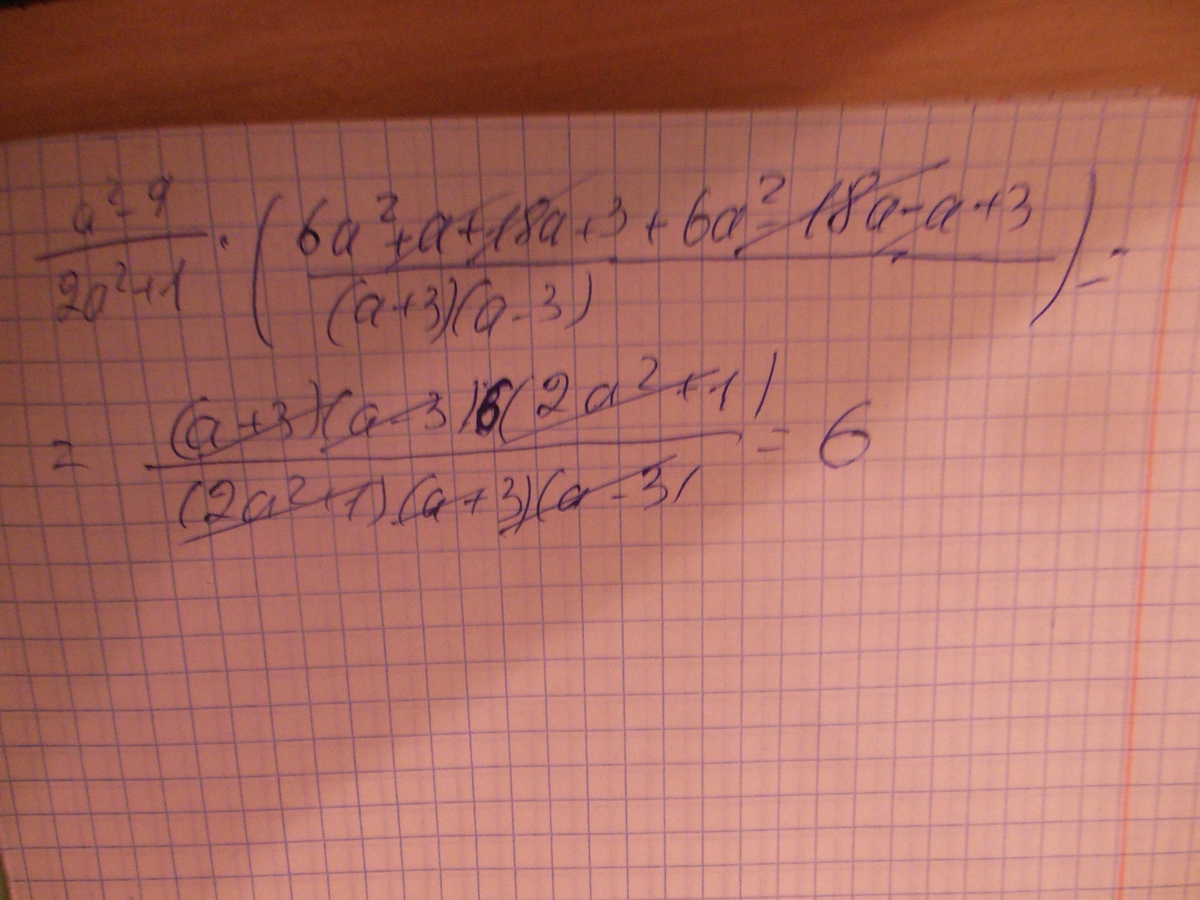 a²-9 / 2a²+1 · ( 6a²+a+18a+3+6a²-18a-a+3 / (a+3)(a-3) ) =
= (a+3)(a-3)6(2a²+1) / (2a²+1)(a+3)(a-3) = 6